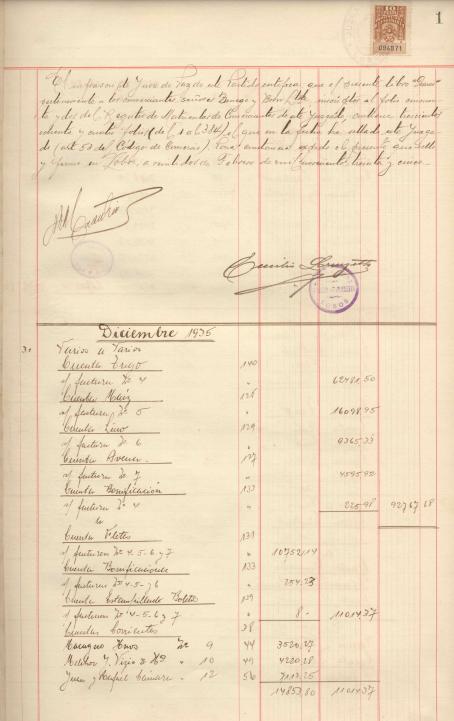 1
094871
El infrascripto Juez de Paz de este Partido certifica: que el presente libro "Diario"
perteneciente a los comerciantes señores y Ltda, inscriptos al folio
y dos del Registro de Matrícula de Comerciantes de este Juzgado, contiene trescientos
ochenta y cuatro folios (del 1 al 384) el que en la fecha ha sellado este Juzga-
do (art 53 del Código de Comercio). Para constancia expido el presente que sello
y firmo en Lobos, a veintidos de Febrero de mil novecientos treinta y cinco.-
Diciembre 1935
31 Varios a Varios
Cuenta Trigo 140
s/ factura No 4 " 62481,50
Cuenta Maíz 125
s/ factura No 5 " 16098,95
Cuenta Lino 129
s/ factura No 6 " 9365,33
Cuenta Avena 127
s/ factura No 7 " 4595,92
Cuenta Bonificación 133
s/ factura No 4 " 225,98 92767,68
a
Cuenta Fletes 131
s/ facturas No 4-5-6 y 7 " 10752,14
Cuenta Bonificación 133
s/ facturas No 4-5-y 6 " 254,23
Cuenta Estampillado Boletos 139
s/ facturas No 4-5-6 y 7 " 8.- 11014,37
Cuentas Corrientes 38
Hnos No 9 44 3520,27
Melchor J. & Ho " 10 49 4220,28
Juan y Rafael Cámara " 12 56 7113,25
14853,80 11014,37